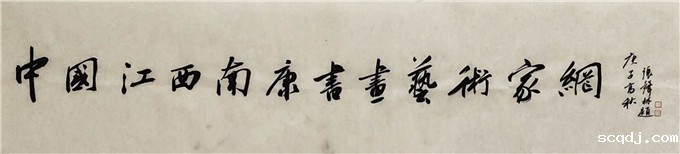 中國江西南康書畫藝術家網
庚子高秋
張鐸林題
scqdj.com